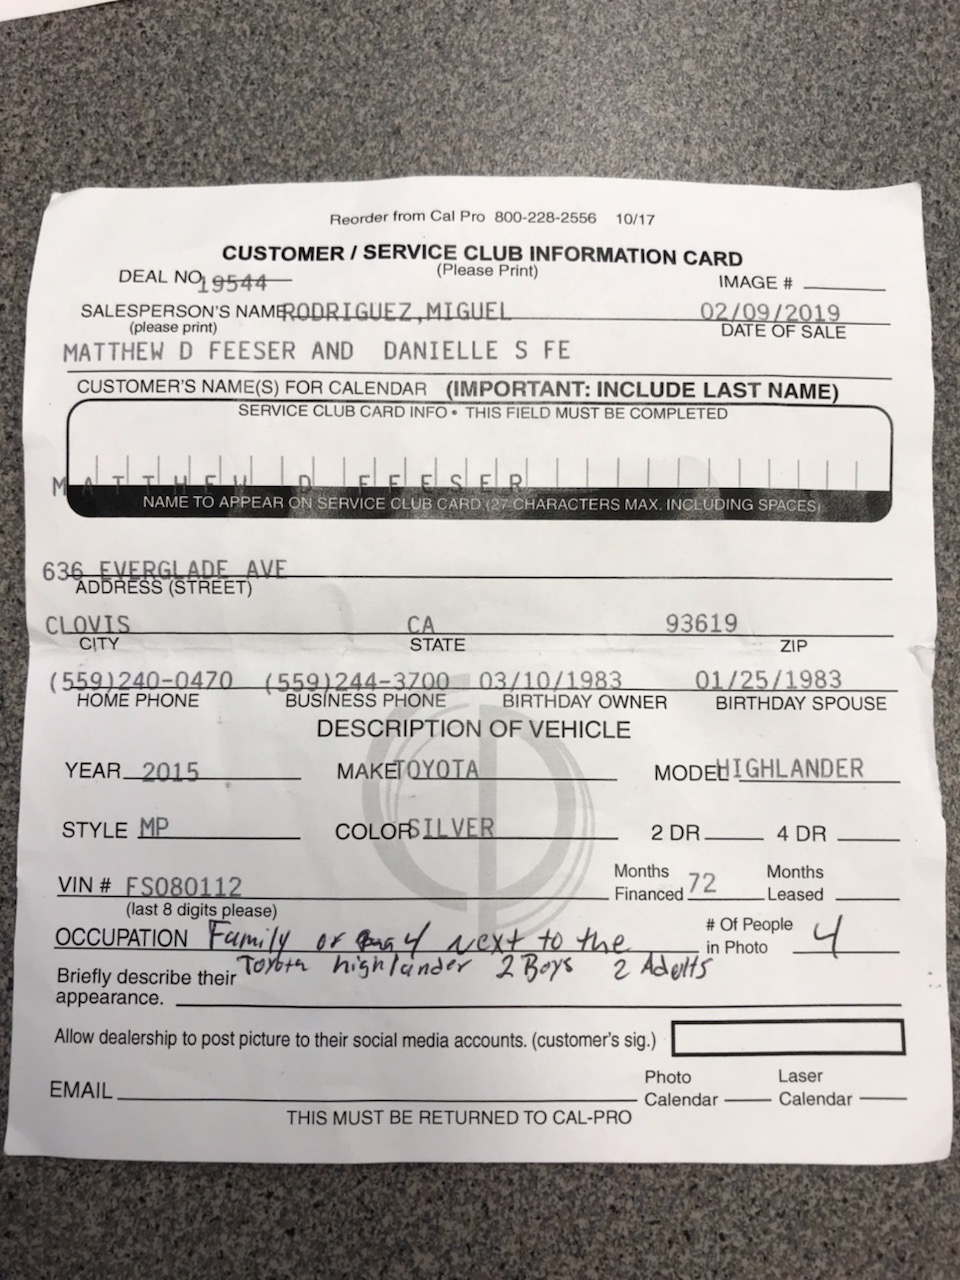 Reorder from Cal Pro 800-228-2556 10/17
CUSTOMER / SERVICE CLUB INFORMATION CARD
(Please Print)
DEAL NO. 19544 IMAGE #
SALESPERSON'S NAME RODRIGUEZ,MIGUEL 02/09/2019
(please print) DATE OF SALE
MATTHEW D FEESER AND DANIELLE S FE
CUSTOMER'S NAME(S) FOR CALENDAR (IMPORTANT: INCLUDE LAST NAME)
SERVICE CLUB CARD INFO • THIS FIELD MUST BE COMPLETED
MATTHEW D FEESER
NAME TO APPEAR ON SERVICE CLUB CARD (27 CHARACTERS MAX. INCLUDING SPACES)
636 EVERGLADE AVE
ADDRESS (STREET)
CLOVIS CA 93619
CITY STATE ZIP
(559)240-0470 (559)244-3700 03/10/1983 01/25/1983
HOME PHONE BUSINESS PHONE BIRTHDAY OWNER BIRTHDAY SPOUSE
DESCRIPTION OF VEHICLE
YEAR 2015 MAKE TOYOTA MODEL HIGHLANDER
STYLE MP COLOR SILVER 2 DR 4 DR
Months Months
VIN # FS080112 Financed 72 Leased
(last 8 digits please)
OCCUPATION Family of 4 next to the # Of People in Photo 4
Toyota highlander 2 Boys 2 Adults
Briefly describe their
appearance.
Allow dealership to post picture to their social media accounts. (customer's sig.)
Photo Laser
EMAIL Calendar Calendar
THIS MUST BE RETURNED TO CAL-PRO